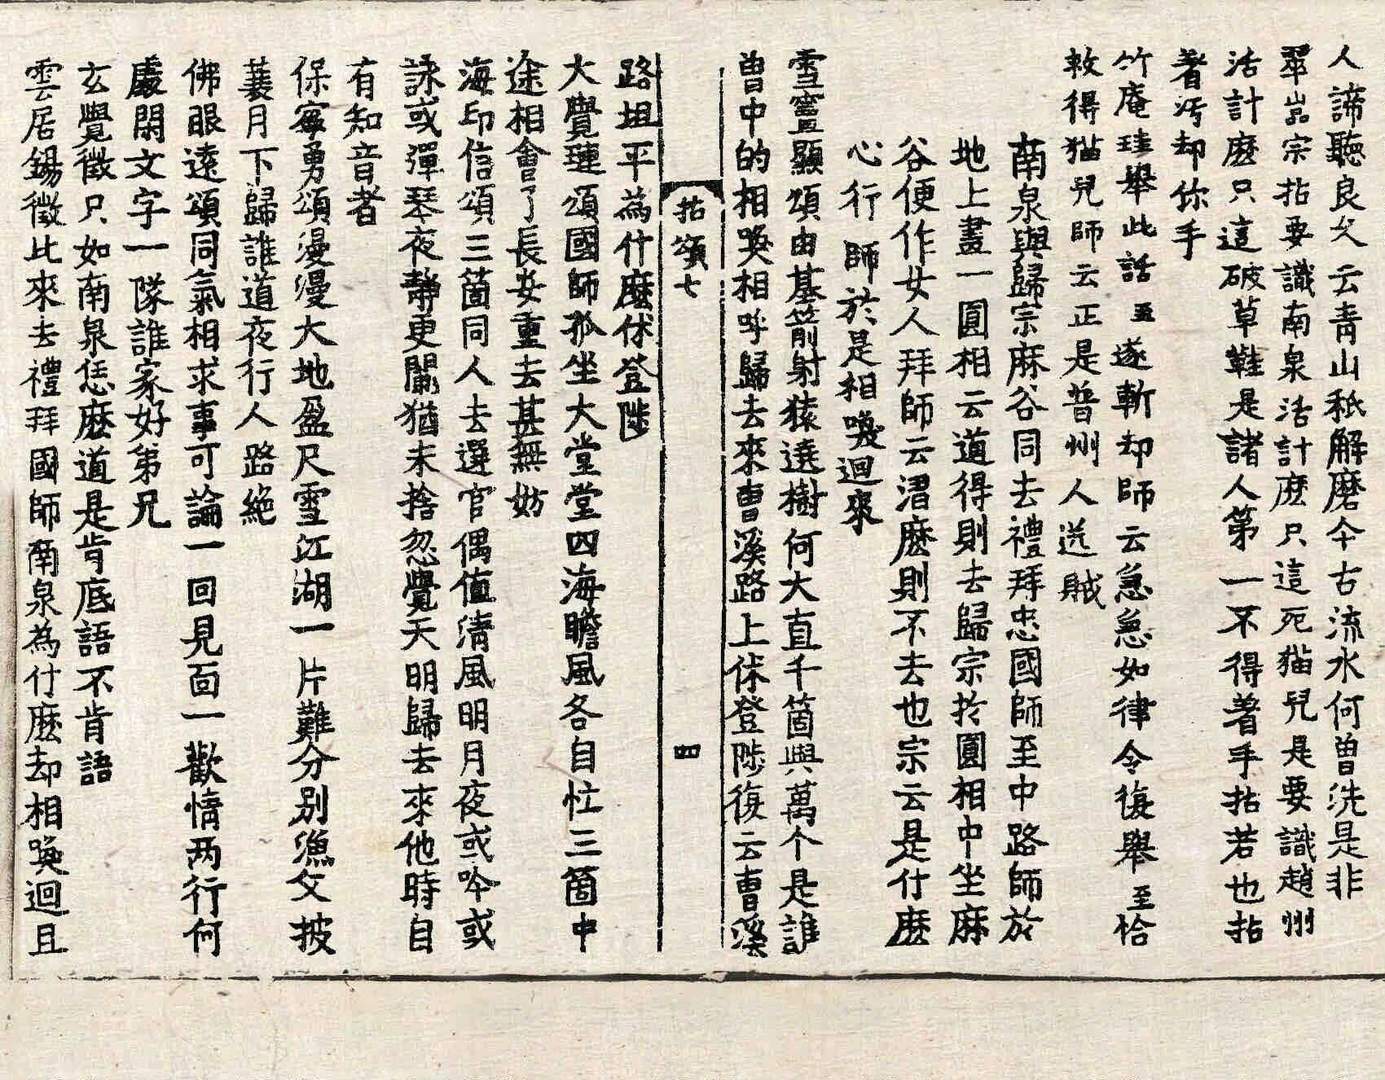 人諦聽良久云靑山秖解磨今古流水何曾洗是非
翠嵓宗拈要識南泉活計麽只這死猫兒是要識趙州
活計麽只這破草鞋是諸人第一不得着手拈若也拈
着汚却你手
竹庵珪擧此話至遂斬却師云急急如律令復擧至恰
救得猫兒師云正是普州人送賊
南泉與歸宗麻谷同去禮拜忠國師至中路師於
地上畫一圓相云道得則去歸宗於圓相中坐麻
谷便作女人拜師云㴠麽則不去也宗云是什麽
心行師於是相喚迴來
雪竇顯頌由基箭射猿遶樹何大直千箇與萬个是誰
曾中的相喚相呼歸去來曺溪路上休登陟復云曺溪
拈頌七 四
路坦平爲什麽休登陟
大覺璉頌國師孤坐大堂堂四海瞻風各自忙三箇中
途相會了長安重去甚無妨
海印信頌三箇同人去選官偶值淸風明月夜或吟或
詠或彈琴夜靜更闌猶未捨忽覺天明歸去來他時自
有知音者
保寧勇頌漫漫大地盈尺雪江湖一片難分別漁父披
蓑月下歸誰道夜行人路絶
佛眼遠頌同氣相求事可論一回見面一歡情兩行何
處閑文字一隊誰家好弟兄
玄覺徵只如南泉恁麽道是肯底語不肯語
雲居錫徵比來去禮拜國師南泉爲什麽却相喚迴且